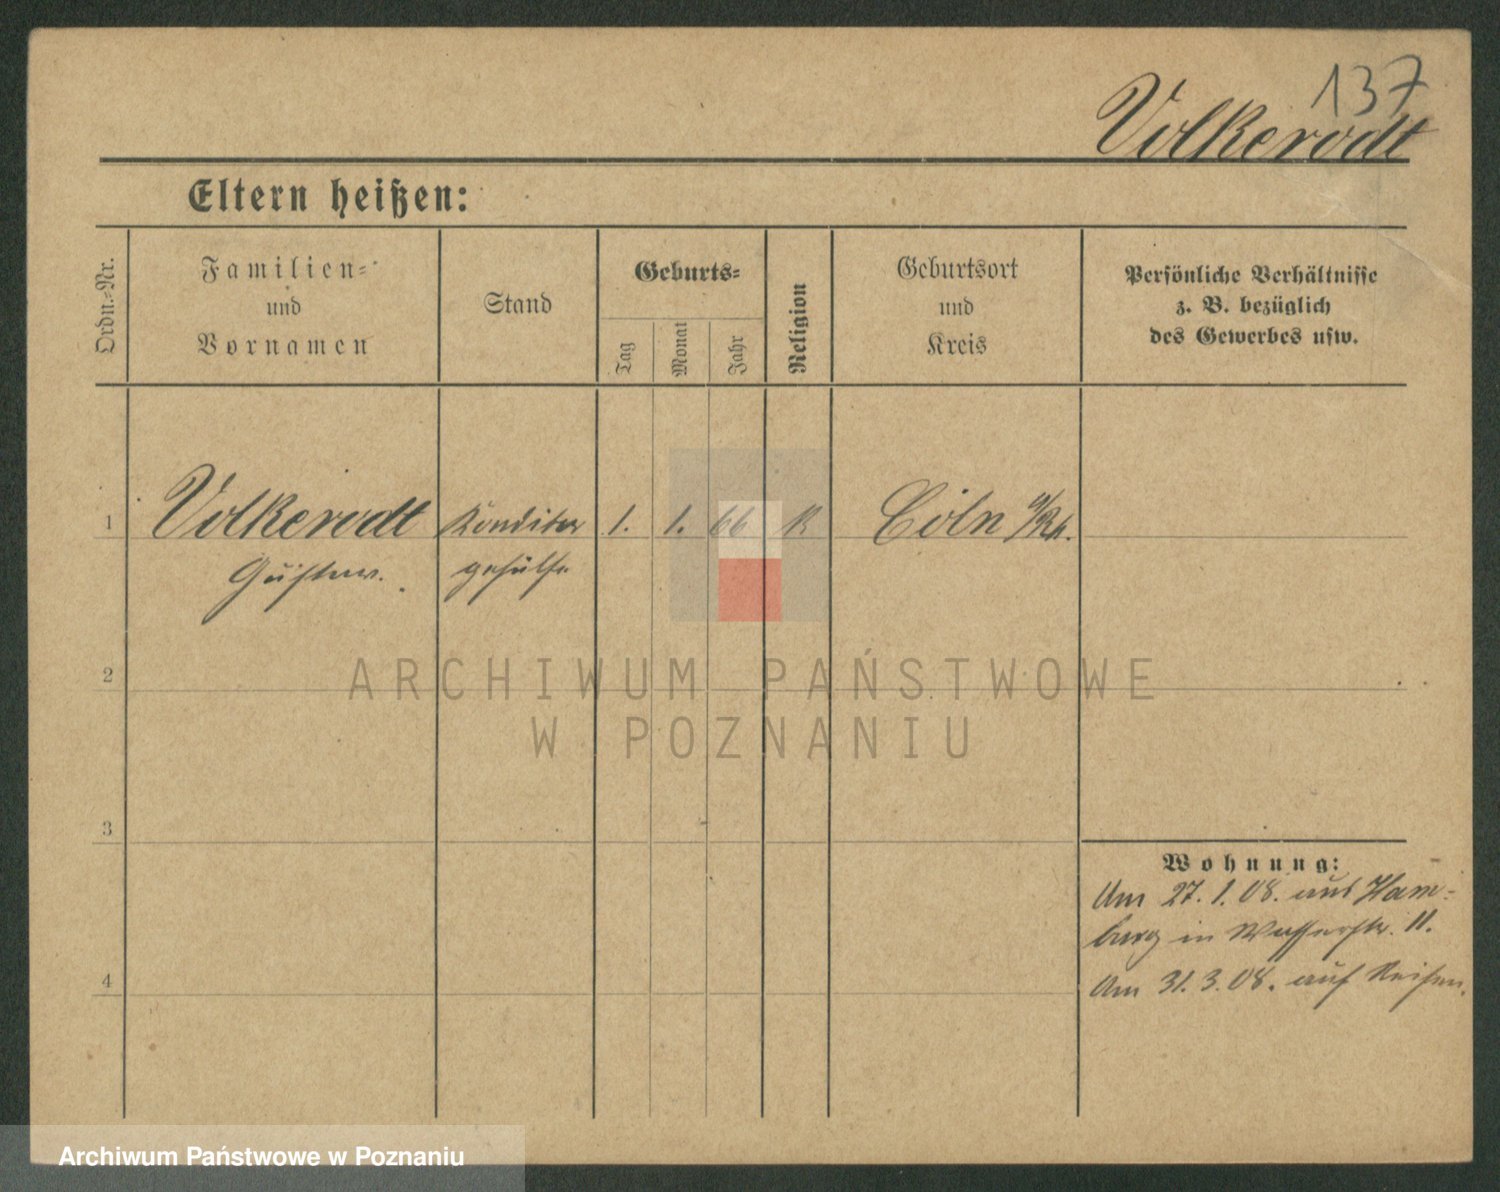 137
Volkerodt
Eltern heißen:
Ordn.-Nr.
Familien-
und
Vornamen
Stand
Geburts-
Tag
Monat
Jahr
Religion
Geburtsort
und
Kreis
Persönliche Verhältnisse
z. B. bezüglich
des Gewerbes usw.
1 Volkerodt Konditor 1. 1. 66 K Cöln a/Rh.
Gustav. gehülfe
2
3
4
Wohnung:
Am 27.1.08. aus Ham-
burg in Wasserstr. 11.
Am 31.3.08. auf Reisen.
ARCHIWUM PAŃSTWOWE
W POZNANIU
Archiwum Państwowe w Poznaniu